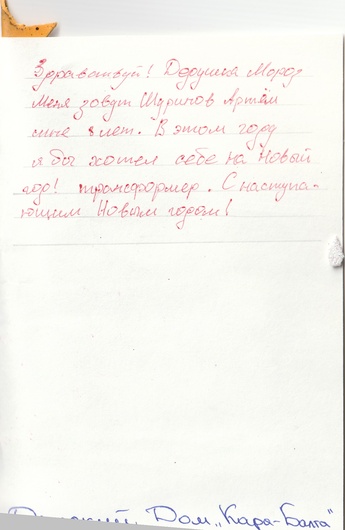 Здравствуй! Дедушка Мороз
Меня зовут Шурипов Артём
мне 8 лет. В этом году
я бы хотел себе на Новый
год! трансформер. С наступа-
ющим Новым годом!
Детский Дом „Кара-Балта"